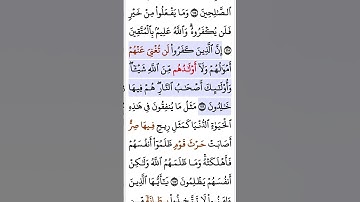 ٱلصَّٰلِحِينَ ١١٤ وَمَا يَفْعَلُوا۟ مِنْ خَيْرٍ
فَلَن يُكْفَرُوهُ ۗ وَٱللَّهُ عَلِيمٌۢ بِٱلْمُتَّقِينَ
١١٥ إِنَّ ٱلَّذِينَ كَفَرُوا۟ لَن تُغْنِىَ عَنْهُمْ
أَمْوَٰلُهُمْ وَلَآ أَوْلَٰدُهُم مِّنَ ٱللَّهِ شَيْـًٔا ۖ
وَأُو۟لَٰٓئِكَ أَصْحَٰبُ ٱلنَّارِ ۚ هُمْ فِيهَا
خَٰلِدُونَ ١١٦ مَثَلُ مَا يُنفِقُونَ فِى هَٰذِهِ
ٱلْحَيَوٰةِ ٱلدُّنْيَا كَمَثَلِ رِيحٍ فِيهَا صِرٌّ
أَصَابَتْ حَرْثَ قَوْمٍ ظَلَمُوٓا۟ أَنفُسَهُمْ
فَأَهْلَكَتْهُ ۚ وَمَا ظَلَمَهُمُ ٱللَّهُ وَلَٰكِنْ
أَنفُسَهُمْ يَظْلِمُونَ ١١٧ يَٰٓأَيُّهَا ٱلَّذِينَ
ءَامَنُوا۟ لَا تَتَّخِذُوا۟ بِطَانَةً مِّن